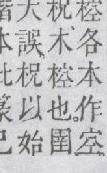 椌各本作空
柷木椌也。圉
大誤柷以始
本此篆